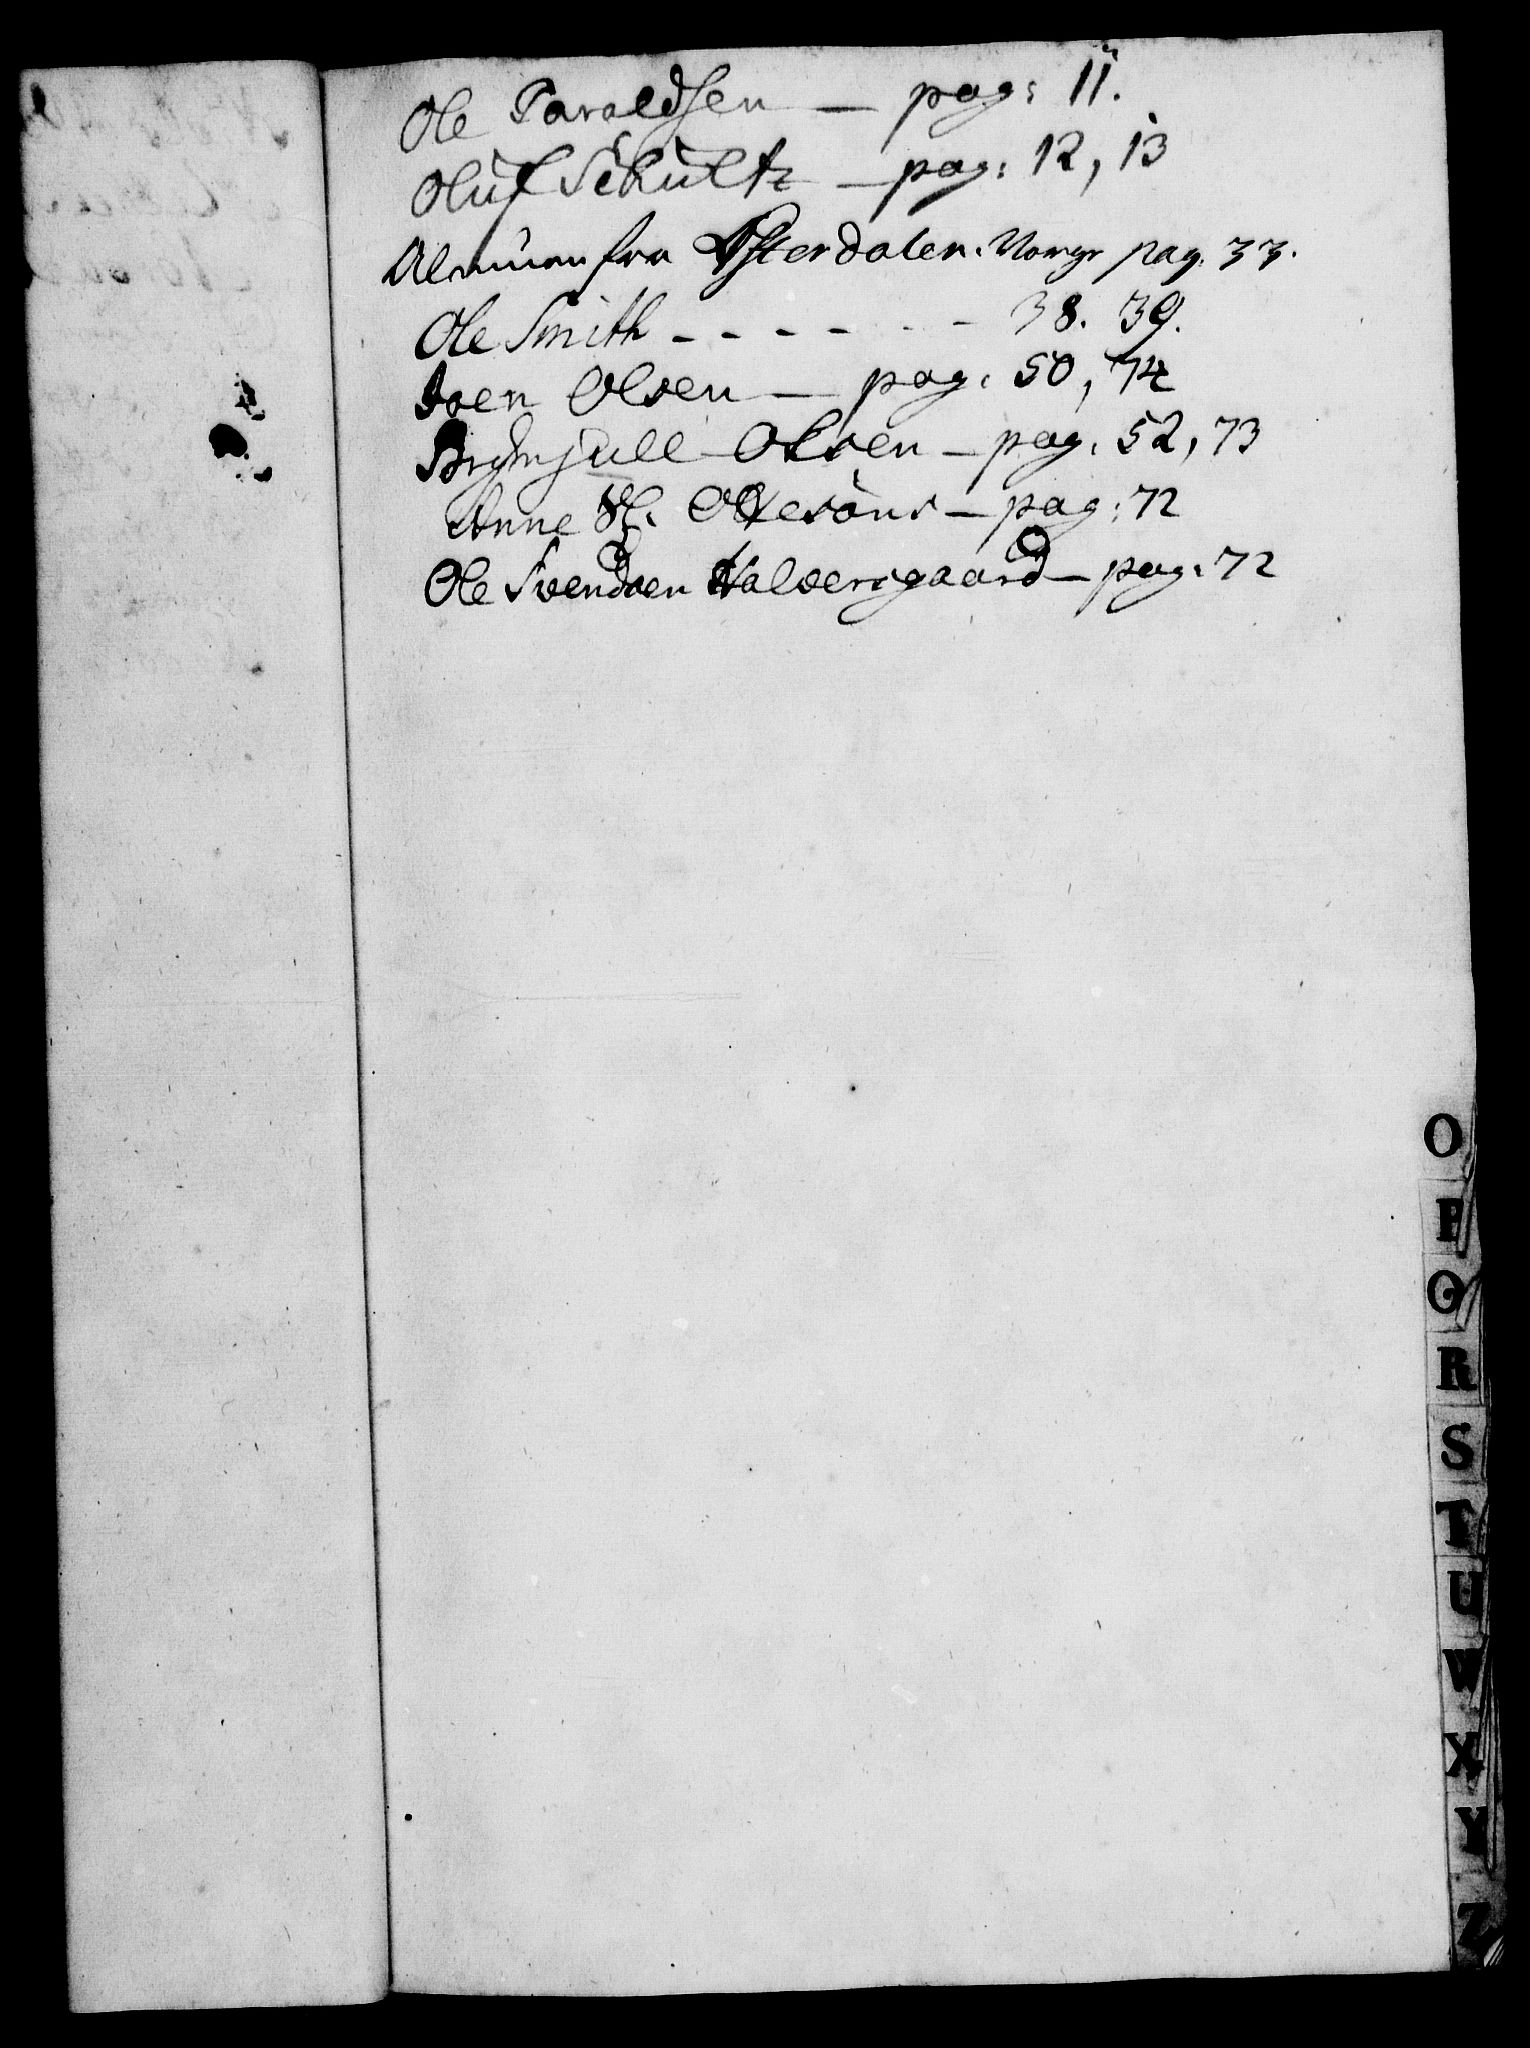 Ole Taraldsen — pag: 11.
Oluf Schultz — pag: 12, 13
Almuen fra Østerdalen. Norge pag. 33.
Ole Smith - - - - - - 38. 39.
Iver Olsen — pag: 50, 74
Brÿnjull Olsen — pag: 52, 73
Anne Sl. Olesöns — pag: 72
Ole Svendsen Halversgaard — pag: 72
O
P
Q
R
S
T
U
W
X
Y
Z